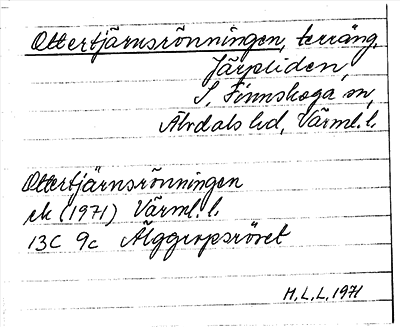 Ottertjärnsrönningen, terräng,
Järpliden,
S. Finnskoga sn,
Älvdals hd, Värml. l.
Ottertjärnsrönningen
ek (1971) Värml. l.
13C 9c Älggropsröset
H.L.L. 1971